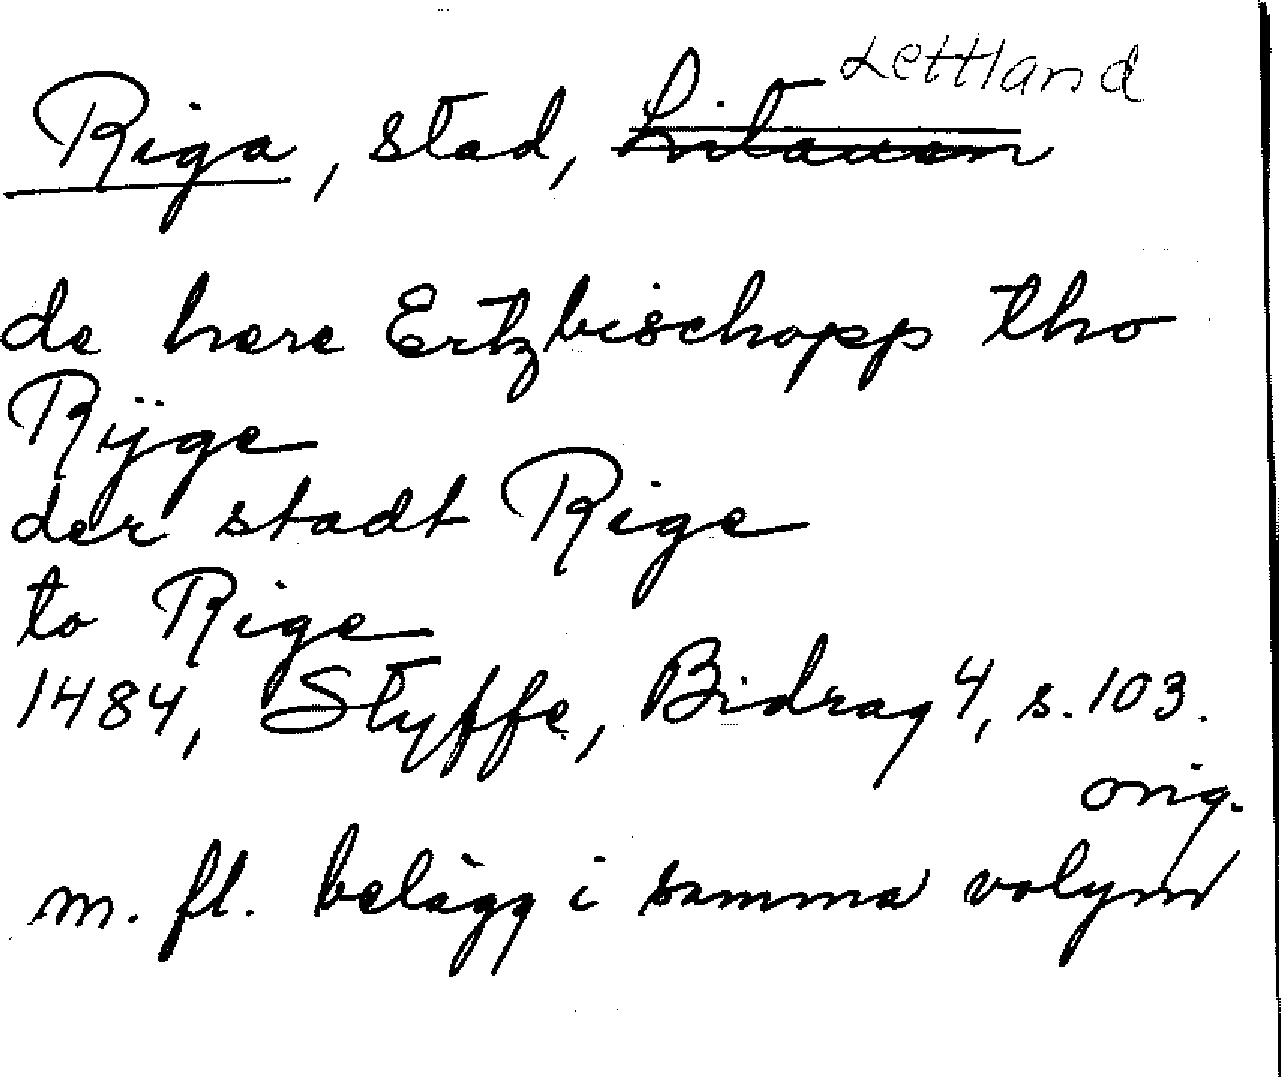 Riga, stad, Litauen Lettland
de here Ertzbischopp tho
Rÿge
der stadt Rige
to Rige
1484, Styffe, Bidrag 4, s. 103.
orig.
m. fl. belägg i samma volym